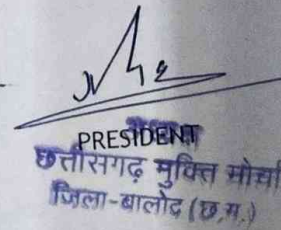 PRESIDENT
छत्तीसगढ़ मुक्ति मोर्चा
जिला-बालोद (छ.ग.)